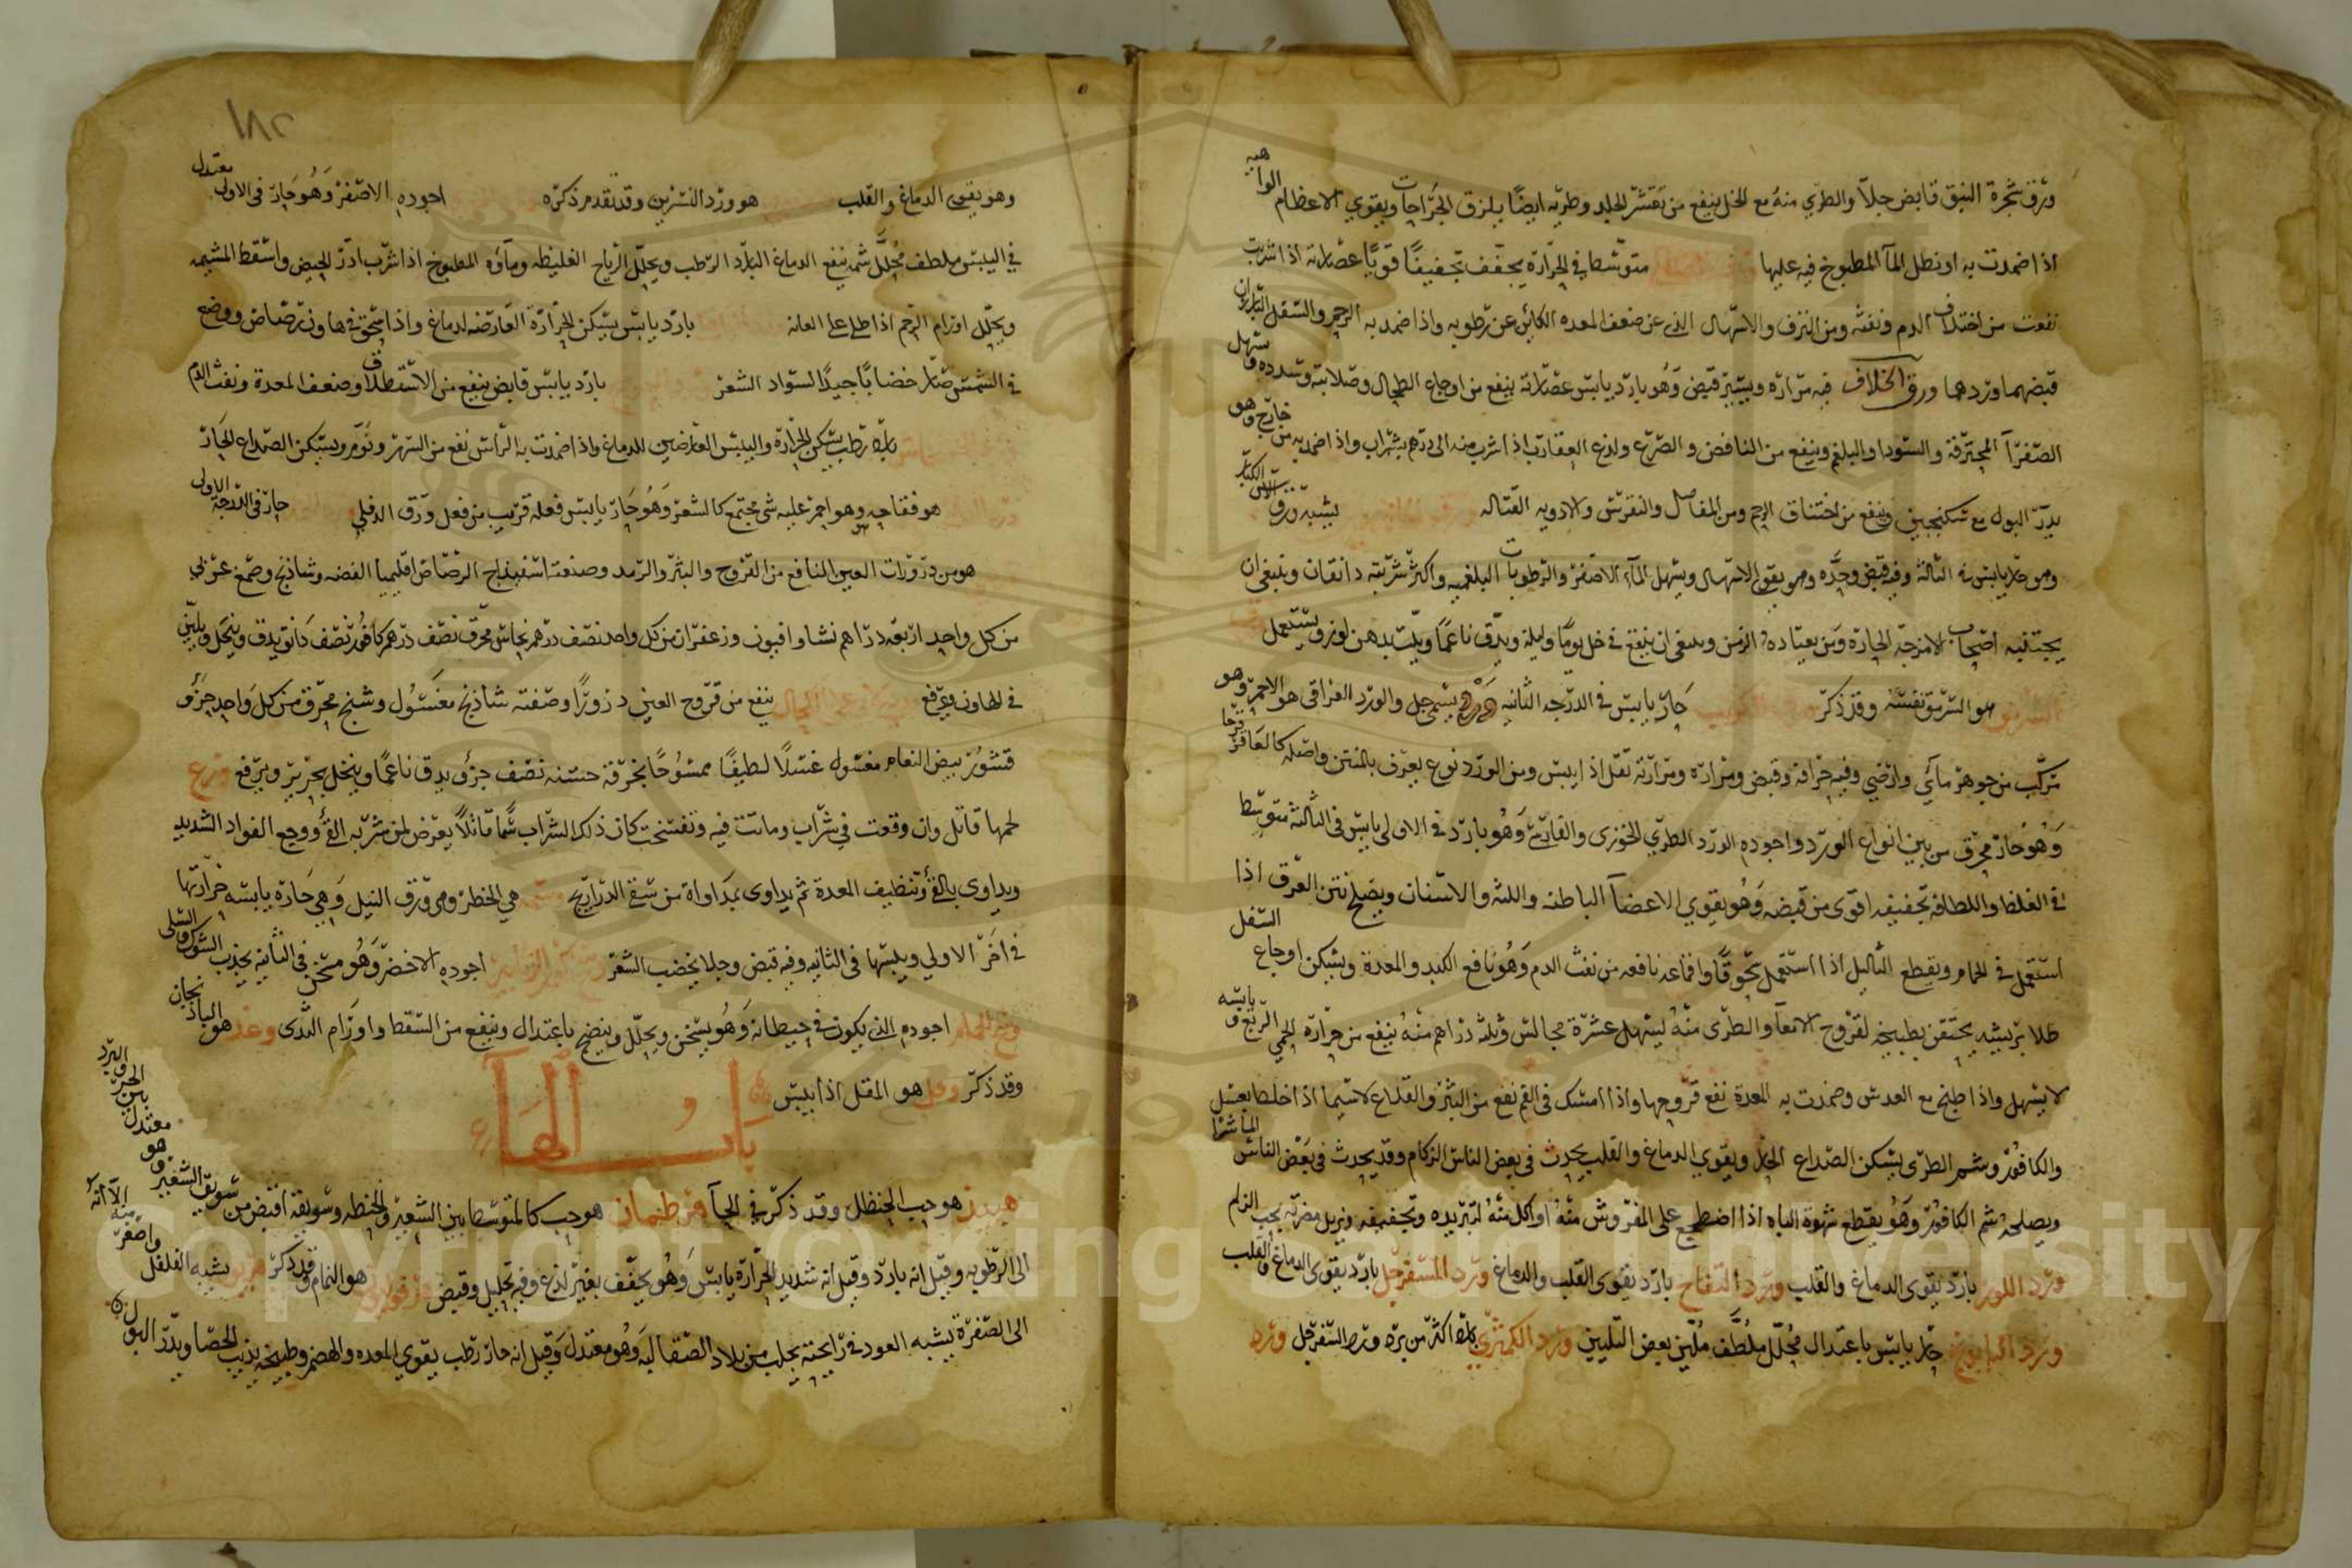 ورق شجرة النبق قابض جلا والطري منه مع الخل ينفع من تقشر الجلد وطريه ايضا يلزق الجراحات ويقوي الاعظام الواهيه
اذا ضمدت به او نطل الما المطبوخ فيه عليها متوسط في الحرارة يجفف تجفيفا قويا عصارته اذا شربت
نفعت من اختلاف الدم ونفثه ومن النزف والاسهال الذي عن ضعف المعده الكائن عن رطوبه واذا ضمد به الرحم والسفل البارزان
قبضهما وردهما ورق الخلاف فيه مرارة ويسير قبض وهو بارد يابس عصارته ينفع من اوجاع الطحال وصلابته وسدده ويسهل
الصفرا المحترقة والسودا والبلغم وينفع من النافض والصرع ولدغ العقارب اذا شرب منه الى درهم بشراب واذا ضمد به من خارج وهو
يدر البول مع سكنجبين وينفع من اختناق الرحم ومن المفاصل والنقرس والادويه القتاله يشبه ورق
وهو حار يابس في الثالثه وفيه قبض وحده وهو يقوي الاسهال ويسهل الماء الاصفر والرطوبات البلغميه واكثر شربته دانقان وينبغي ان
يجتنبه اصحاب الامزجة الحارة ومن يعتاده وينبغي ان ينقع في خل يوما وليلة ويدق ناعما ويلت بدهن لوز ويستعمل
هو السرمق نفسه وقد ذكر حار يابس في الدرجه الثانيه والورد العراقي هو الاحمر وهو
مركب من جوهر مائي وارضي وفيه حرافة وقبض ومرارة ومرارته تقل اذا يبس ومن الورد نوع يعرف بالمنتن واصله كالعاقرقرحا
وهو حار محرق من بين انواع الورد واجوده الورد الطري الجوزى والفارسي وهو بارد في الاولى يابس في الثالثة متوسط
في الغلظ واللطافة تجفيفه اقوى من قبضه وهو يقوي الاعضا الباطنه واللثه والاسنان ويصلح نتن العرق اذا
استعمل في الحمام ويقطع الثاليل اذا استعمل سحوقا واقماعه نافعه من نفث الدم وهو نافع الكبد والمعدة ويسكن اوجاع السفل
طلا بريشه يحتقن بطبيخه لقروح الامعا والطري منه يسهل عشرة مجالس وثلثه دراهم منه ينفع من حرارة الحمى الربع ويابسه
لا يسهل واذا طبخ مع العدس وضمدت به المعدة نفع قروحها واذا امسك في الفم نفع من البثر والقلاع لاسيما اذا خلط بعسل
والكافور وشم الطري يسكن الصداع الحار ويقوي الدماغ والقلب يحدث في بعض الناس الزكام وقد يحدث في بعض الناس الماشرا
ويصلحه شم الكافور وهو يقطع شهوة الباه اذا اضطجع على المفروش منه او اكل منه لتبريده وتجفيفه ويزيل مضرته حب الزلم
ورد اللوز بارد يقوى الدماغ والقلب ورد التفاح بارد يقوى القلب والدماغ ورد السفرجل بارد يقوى الدماغ والقلب
ورد البابونج حار يابس باعتدال محلل ملطف ملين بعض التليين ورد الكمثرى بارد اكثر من برد ورد السفرجل ورد
١٨٢
وهو يقوى الدماغ والقلب هو ورد النسرين وقد تقدم ذكره اجوده الاصفر وهو حار في الاولى معتدل
في اليبس ملطف محلل شمه ينفع الدماغ البارد الرطب ويحلل الرياح الغليظه وماؤه المطبوخ اذا شرب ادر الحيض واسقط المشيمه
ويحلل اورام الرحم اذا طلي على العانه بارد يابس يسكن الحرارة العارضه لدماغ واذا سحق في هاون رصاص ووضع
في الشمس صار خضابا جيدا لسواد الشعر بارد يابس قابض ينفع من الاستطلاق وضعف المعدة ونفث الدم
بارد رطب يسكن الحرارة واليبس العارضين للدماغ واذا ضمدت به الراس نفع من السهر ونوم ويسكن الصداع الحار
هو فقاحه وهو احمر عليه شى مجتمع كالشعر وهو حار يابس فعله قريب من فعل ورق الدفلى حار في الدرجة الاولى
هو من ذرورات العين النافع من القروح والبثر والرمد وصنعته اسفيذاج الرصاص اقليميا الفضه وشاذنج وصمغ عربي
من كل واحد اربعة دراهم نشا وافيون وزعفران من كل واحد نصف درهم نحاس محرق نصف درهم كافور نصف دانق يدق وينخل ويلين
في الهاون ويرفع ينفع من قروح العين ذرورا وصفته شاذنج مغسول وشنج محرق من كل واحد جزؤ
قشور بيض النعام مغسول غسلا لطيفا ممسوحا بخرقة خشنه نصف جزؤ يدق ناعما وينخل بحرير ويرفع وزغ
لحمها قاتل وان وقعت في شراب وماتت فيه وتفسخت كان ذلك الشراب سما قاتلا يعرض لمن شربه القئ ووجع الفواد الشديد
ويداوى بالقئ وتنظيف المعدة ثم يداوى بمداواة من سقي الذراريح وسمه هي الخطر وهي ورق النيل وهي حارة يابسه حرارتها
في اخر الاولي ويبسها في الثانيه وفيه قبض وجلا يخضب الشعر اجوده الاخضر وهو مسخن في الثانيه يجذب الشوك والسلى
وسخ الحمام اجوده الذي يكون في حيطانه وهو يسخن ويحلل وينضج باعتدال وينفع من السقط واورام الثدى وغد هو الباذنجان
وقد ذكر وقل هو المقل اذا يبس
باب الهاء
هبيد هو حب الحنظل وقد ذكر في الحا هرطمان هو حب كالمتوسط بين الشعير والحنطه وسويقه اقبض من سويق الشعير وهو معتدل بين الحر والبرد
الى الرطوبه وقيل انه بارد وقيل انه شديد الحرارة يابس وهو يجفف بغير لذع وفيه تحليل وقبض هو النمام وقد ذكر يشبه الفلفل واصغر منه الا انه
الى الصفرة يشبه العود في رائحته يجلب من بلاد الصقالبه وهو معتدل وقيل انه حار رطب يقوي المعده والهضم وطبيخه يذيب الحصا ويدر البول